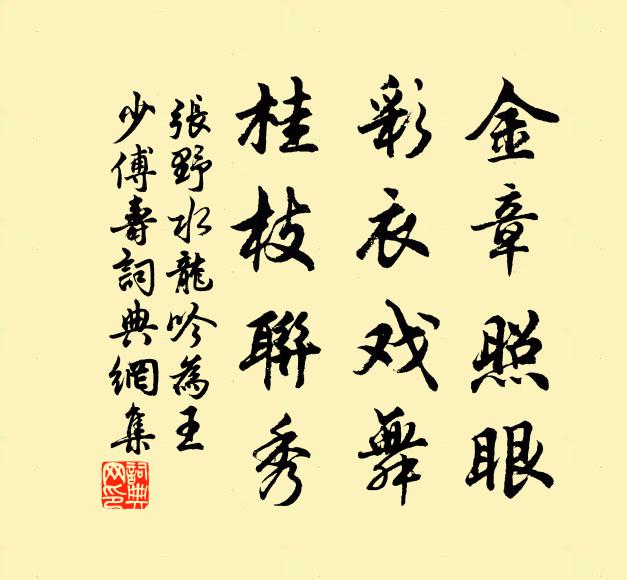 金章照眼
彩衣戏舞
桂枝聯秀
張野水龍吟為王
少傅壽詞典網集
詞典網印